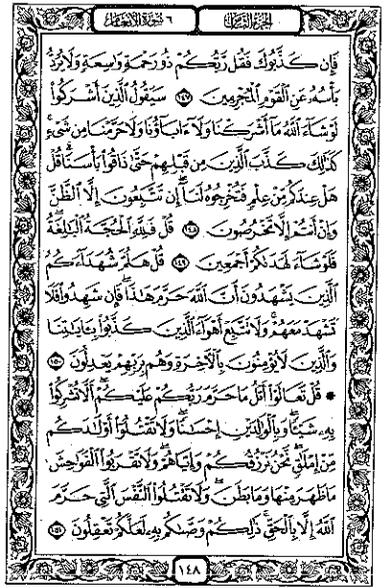 الجزء الثامن ٦ سورة الأنعام
فَإِن كَذَّبُوكَ فَقُل رَّبُّكُمْ ذُو رَحْمَةٍ وَٰسِعَةٍ وَلَا يُرَدُّ
بَأْسُهُۥ عَنِ ٱلْقَوْمِ ٱلْمُجْرِمِينَ ١٤٧ سَيَقُولُ ٱلَّذِينَ أَشْرَكُوا۟
لَوْ شَآءَ ٱللَّهُ مَآ أَشْرَكْنَا وَلَآ ءَابَآؤُنَا وَلَا حَرَّمْنَا مِن شَىْءٍ ۚ
كَذَٰلِكَ كَذَّبَ ٱلَّذِينَ مِن قَبْلِهِمْ حَتَّىٰ ذَاقُوا۟ بَأْسَنَا ۗ قُلْ
هَلْ عِندَكُم مِّنْ عِلْمٍ فَتُخْرِجُوهُ لَنَآ ۖ إِن تَتَّبِعُونَ إِلَّا ٱلظَّنَّ
وَإِنْ أَنتُمْ إِلَّا تَخْرُصُونَ ١٤٨ قُلْ فَلِلَّهِ ٱلْحُجَّةُ ٱلْبَٰلِغَةُ ۖ
فَلَوْ شَآءَ لَهَدَىٰكُمْ أَجْمَعِينَ ١٤٩ قُلْ هَلُمَّ شُهَدَآءَكُمُ
ٱلَّذِينَ يَشْهَدُونَ أَنَّ ٱللَّهَ حَرَّمَ هَٰذَا ۖ فَإِن شَهِدُوا۟ فَلَا
تَشْهَدْ مَعَهُمْ ۚ وَلَا تَتَّبِعْ أَهْوَآءَ ٱلَّذِينَ كَذَّبُوا۟ بِـَٔايَٰتِنَا
وَٱلَّذِينَ لَا يُؤْمِنُونَ بِٱلْـَٔاخِرَةِ وَهُم بِرَبِّهِمْ يَعْدِلُونَ ١٥٠
* قُلْ تَعَالَوْا۟ أَتْلُ مَا حَرَّمَ رَبُّكُمْ عَلَيْكُمْ ۖ أَلَّا تُشْرِكُوا۟
بِهِۦ شَيْـًٔا ۖ وَبِٱلْوَٰلِدَيْنِ إِحْسَٰنًا ۖ وَلَا تَقْتُلُوٓا۟ أَوْلَٰدَكُم
مِّنْ إِمْلَٰقٍ ۖ نَّحْنُ نَرْزُقُكُمْ وَإِيَّاهُمْ ۖ وَلَا تَقْرَبُوا۟ ٱلْفَوَٰحِشَ
مَا ظَهَرَ مِنْهَا وَمَا بَطَنَ ۖ وَلَا تَقْتُلُوا۟ ٱلنَّفْسَ ٱلَّتِى حَرَّمَ
ٱللَّهُ إِلَّا بِٱلْحَقِّ ۚ ذَٰلِكُمْ وَصَّىٰكُم بِهِۦ لَعَلَّكُمْ تَعْقِلُونَ ١٥١
١٤٨